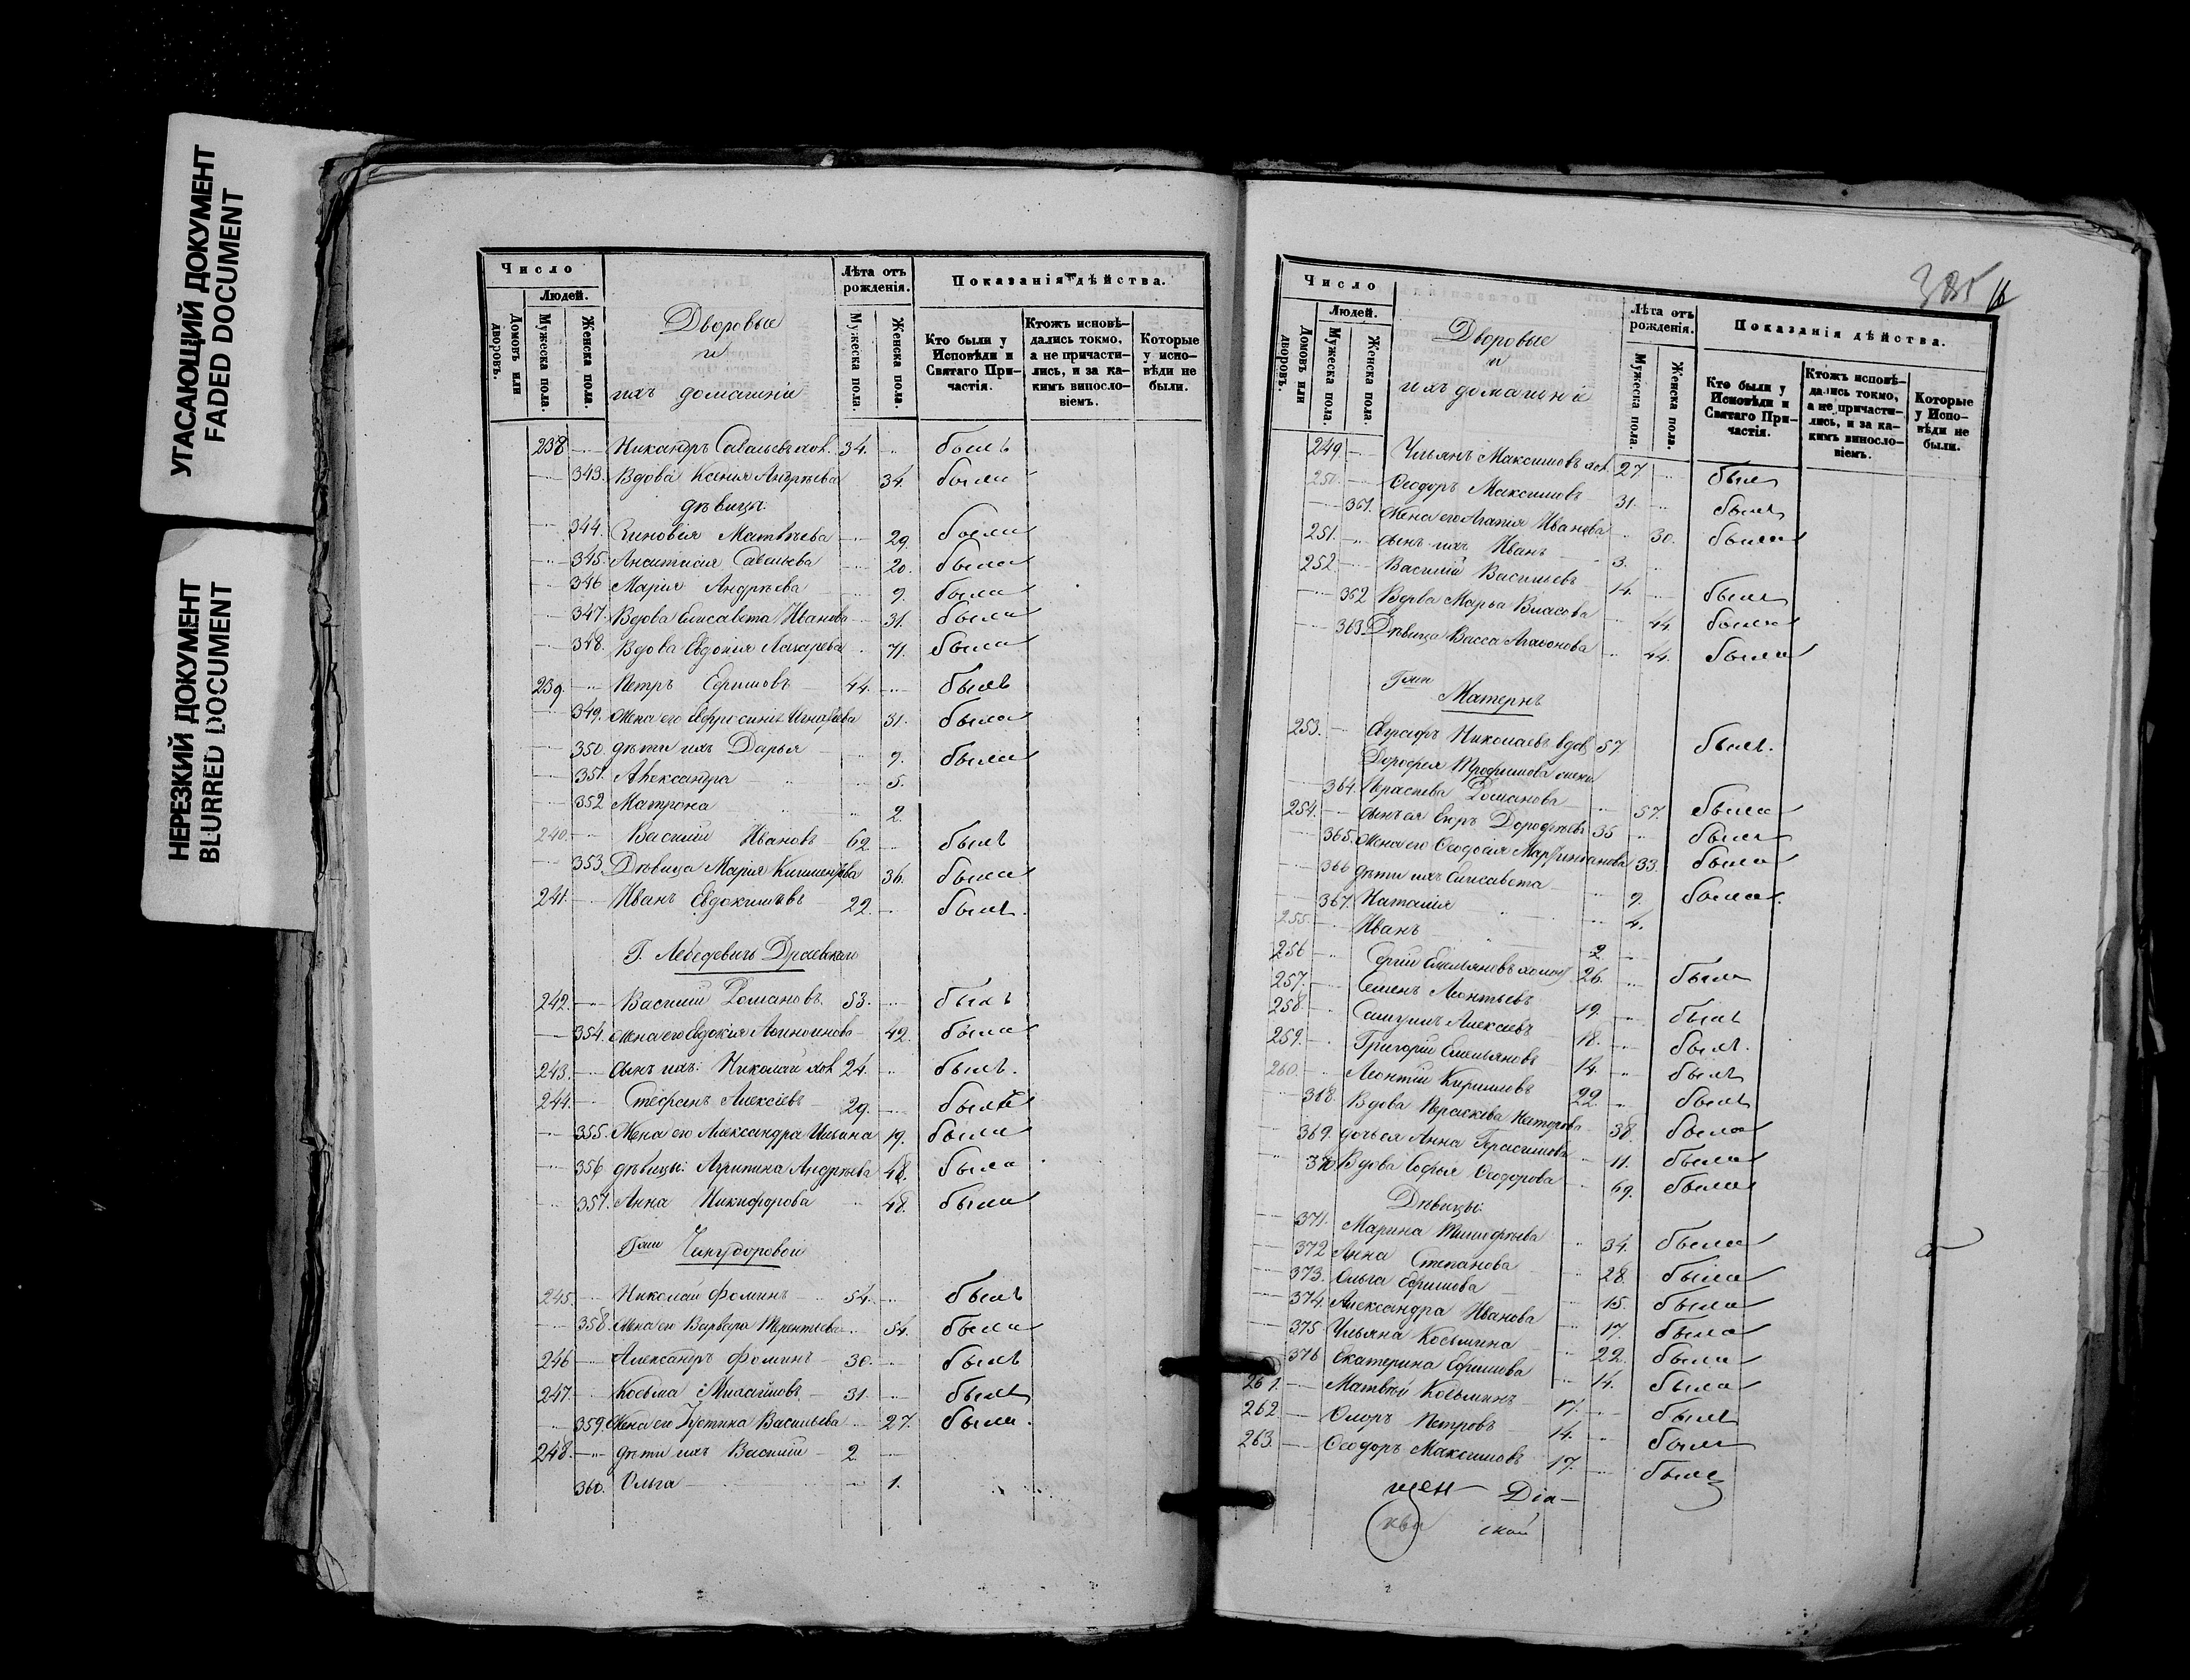 УГАСАЮЩИЙ ДОКУМЕНТ
FADED DOCUMENT
НЕРЕЗКИЙ ДОКУМЕНТ
BLURRED DOCUMENT
Число
Людей.
Домовъ или дворовъ.
Мужеска пола.
Женска пола.
Дворовые
и
ихъ домашніе
Лѣта отъ рожденія.
Мужеска пола.
Женска пола.
Показанія дѣйства.
Кто были у Исповѣди и Святаго Причастія.
Ктожъ исповѣдались токмо, а не причастились, и за какимъ винословіемъ.
Которые у исповѣди не были.
238 Никандръ Савельевъ хол. 34. былъ
343. Вдова Ксенія Андреева 34. была
дѣвицы:
344. Зиновія Матвѣева 29. была
345. Анастасія Савельева 20. была
346 Марія Андрѣева 9. была
347. Вдова Елисавета Иванова 31. была
348. Вдова Евдокія Лазарева 71. была
239. Петръ Ефимовъ 44. былъ
349. Жена его Ефросинія Игнатьева 31. была
350. дѣти ихъ Дарья 9. была
351. Александра 5.
352 Матрона 2.
240. Василій Ивановъ 62 былъ
353. Дѣвица Марія Климентьева 36. была
241. Иванъ Евдокимовъ 22. былъ.
Г. Лебедевичъ Драевскаго
242. Василій Романовъ 53. былъ
354. Жена его Евдокія 42. была
243. сынъ ихъ: Николай хол. 24. былъ.
244. Стефанъ Алексіевъ 29. былъ
355. Жена его Александра Ильина 19. была
356 дѣвицы: Агрипина Андрѣева 48. была
357. Анна Никифорова 48. была
Гжи
245. Николай Фоминъ 54. былъ
358. Жена его Варвара Терентьева 54. была
246 Александръ Фоминъ 30. былъ
247. Косьма Михайловъ 31. былъ
359. Жена его Іустина Васильева 27. была.
248. дѣти ихъ Василій 2
360. Ольга 1.
385
16
Число
Людей.
Домовъ или дворовъ.
Мужеска пола.
Женска пола.
Дворовые
и
ихъ домашніе
Лѣта отъ рожденія.
Мужеска пола.
Женска пола.
Показанія дѣйства.
Кто были у Исповѣди и Святаго Причастія.
Ктожъ исповѣдались токмо, а не причастились, и за какимъ винословіемъ.
Которые у Исповѣди не были.
249. Ульянъ Максимовъ хол. 27. былъ
250. Ѳеодоръ Максимовъ 31. былъ
361. Жена его Агапія Иванова 30. была
251. сынъ ихъ Иванъ 3.
252. Василій Васильевъ 14. былъ
362 Вдова Марья Власова 44 была
363. Дѣвица Васса Агафонова 44. была
Гжи
Матернъ
253. Евграфъ Николаевъ вдов. 57 былъ.
Дорофея Трофимова жена
364. Параскева Романова 57. была
254. сынъ ея Дорофѣевъ 35 былъ
365. Жена его Ѳеодосія 33. была
366 дѣти ихъ Елисавета 9. была.
367. Наталія 4.
255. Иванъ 2
256 Сергій Емельяновъ холост 26. былъ
257. Семенъ Леонтьевъ 19. былъ
258. Самуилъ Алексіевъ 18. былъ.
259. Григорій Емельяновъ 14. былъ
260. Леонтій Кириловъ 22. былъ
368. Вдова Параскева Нестерова 38. была
369. дочь ея Анна Герасимова 11. была
370. Вдова Софья Ѳеодорова 69. была
Дѣвицы:
371. Марина Тимофѣева 34. была
372 Анна Степанова 28. была
373. Ольга Ефимова 15. была
374. Александра Иванова 17. была
375 Ульяна Косьмина 22. была
376 Екатерина Ефимова 14. была
261. Матвѣй Косьминъ 17. былъ
262. Флоръ Петровъ 14. былъ
263. Ѳеодоръ Максимовъ 17. былъ
щен Діа
ской